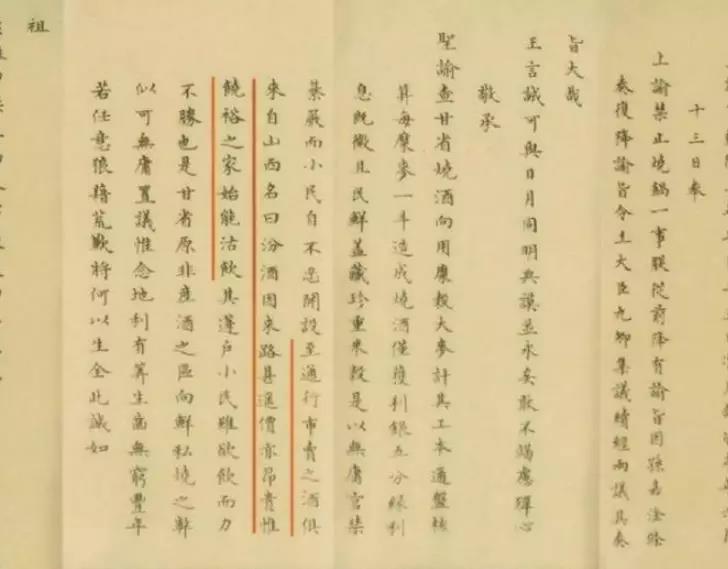 十三日奉
上諭禁止燒鍋一事朕從前降有諭旨因孫嘉淦條
奏復降諭旨令王大臣九卿集議續經兩議具奏
旨大哉
王言誠可與日月同明典謨並永矣敢不竭慮殫心
敬承
聖諭查甘省燒酒向用糜穀大麥計其工本通盤核
算每糜麥一斗造成燒酒僅獲利銀五分緣利
息既微且民鮮蓋藏珍重米穀是以無庸官禁
而小民自不開設至通行市賣之酒俱
來自山西名曰汾酒因來路甚遙價亦昂貴惟
饒裕之家始能沽飲其蓬戶小民雖欲飲而力
不勝也是甘省原非產酒之區向鮮私燒之弊
似可無庸置議惟念地利有算生齒無窮豐年
若任意狼藉荒歉將何以生全此誠如
祖